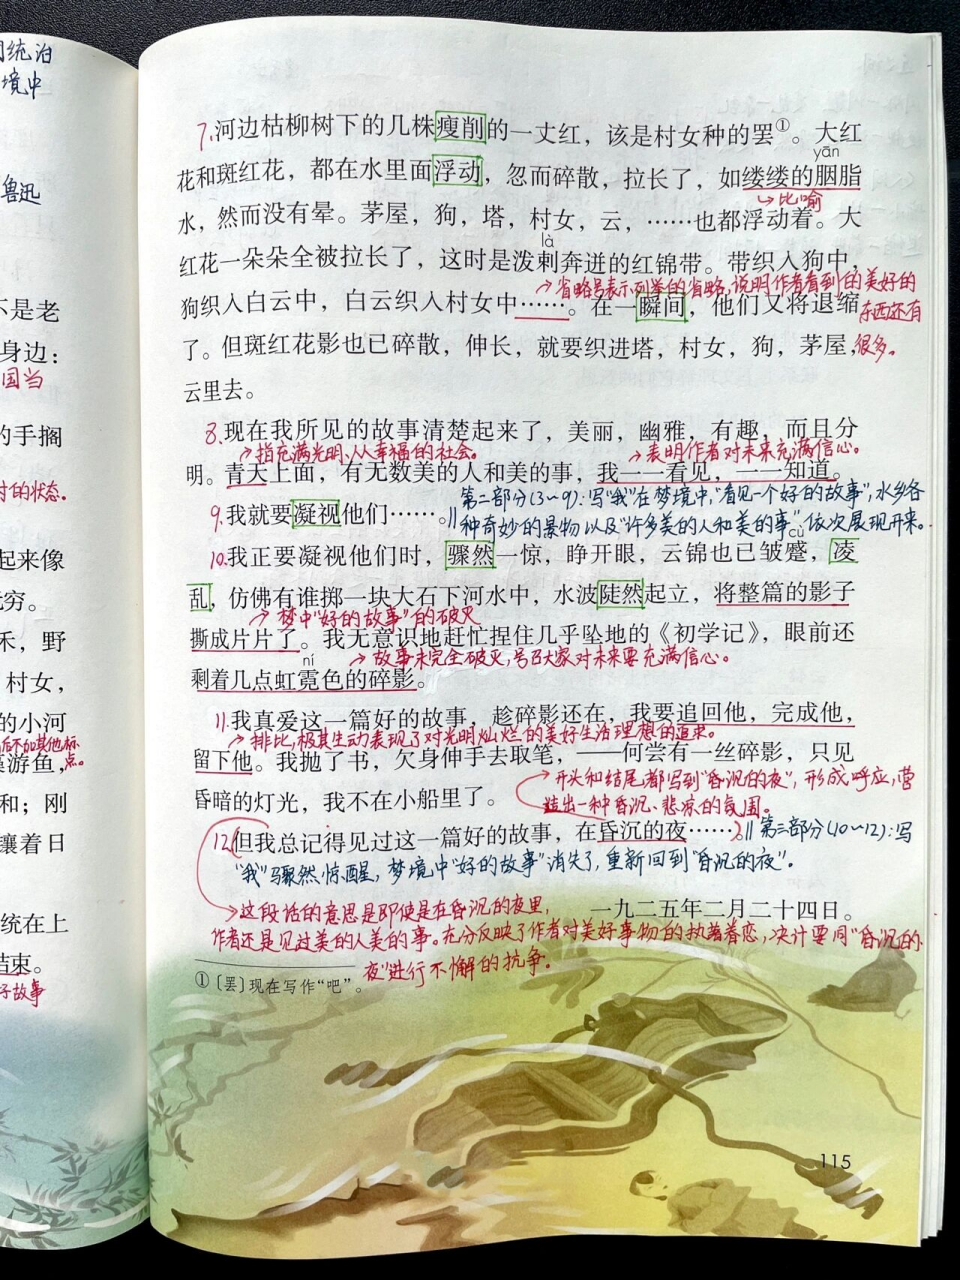 统治
境中
鲁迅
不是老
身边：
国当
的手搁
时的状态。
起来像
无穷。
禾，野
村女，
的小河
后不加其他标
点。
藻游鱼，
和；刚
镶着日
统在上
结束。
好故事
7.河边枯柳树下的几株瘦削的一丈红，该是村女种的罢①。大红
yān
花和斑红花，都在水里面浮动，忽而碎散，拉长了，如缕缕的胭脂
→比喻
水，然而没有晕。茅屋，狗，塔，村女，云，……也都浮动着。大
là
红花一朵朵全被拉长了，这时是泼剌奔迸的红锦带。带织入狗中，
→省略号表示列举的省略，说明作者看到的美好的
东西还有
很多。
狗织入白云中，白云织入村女中……。在一瞬间，他们又将退缩
了。但斑红花影也已碎散，伸长，就要织进塔，村女，狗，茅屋，
云里去。
8.现在我所见的故事清楚起来了，美丽，幽雅，有趣，而且分
→指充满光明、人人幸福的社会。
→表明作者对未来充满信心。
明。青天上面，有无数美的人和美的事，我一一看见，一一知道。
9.我就要凝视他们……。‖
第二部分(3~9)：写“我”在梦境中，“看见一个好的故事”，水乡各
种奇妙的景物以及“许多美的人和美的事”依次展现开来。
cù
10.我正要凝视他们时，骤然一惊，睁开眼，云锦也已皱蹙，凌
乱，仿佛有谁掷一块大石下河水中，水波陡然起立，将整篇的影子
→梦中“好的故事”的破灭
撕成片片了。我无意识地赶忙捏住几乎坠地的《初学记》，眼前还
ní
→故事未完全破灭，号召大家对未来要充满信心。
剩着几点虹霓色的碎影。
11.我真爱这一篇好的故事，趁碎影还在，我要追回他，完成他，
→排比，极其生动表现了对光明灿烂的美好生活理想的追求。
留下他。我抛了书，欠身伸手去取笔，——何尝有一丝碎影，只见
→开头和结尾都写到“昏沉的夜”，形成呼应，营
造出一种昏沉、悲凉的氛围。
昏暗的灯光，我不在小船里了。
12.但我总记得见过这一篇好的故事，在昏沉的夜……。‖第三部分(10~12)：写
“我”骤然惊醒，梦境中“好的故事”消失了，重新回到“昏沉的夜”。
→这段话的意思是即使是在昏沉的夜里，
一九二五年二月二十四日。
作者还是见过美的人美的事。充分反映了作者对美好事物的执着眷恋，决计要同“昏沉的
夜”进行不懈的抗争。
①〔罢〕现在写作“吧”。
115